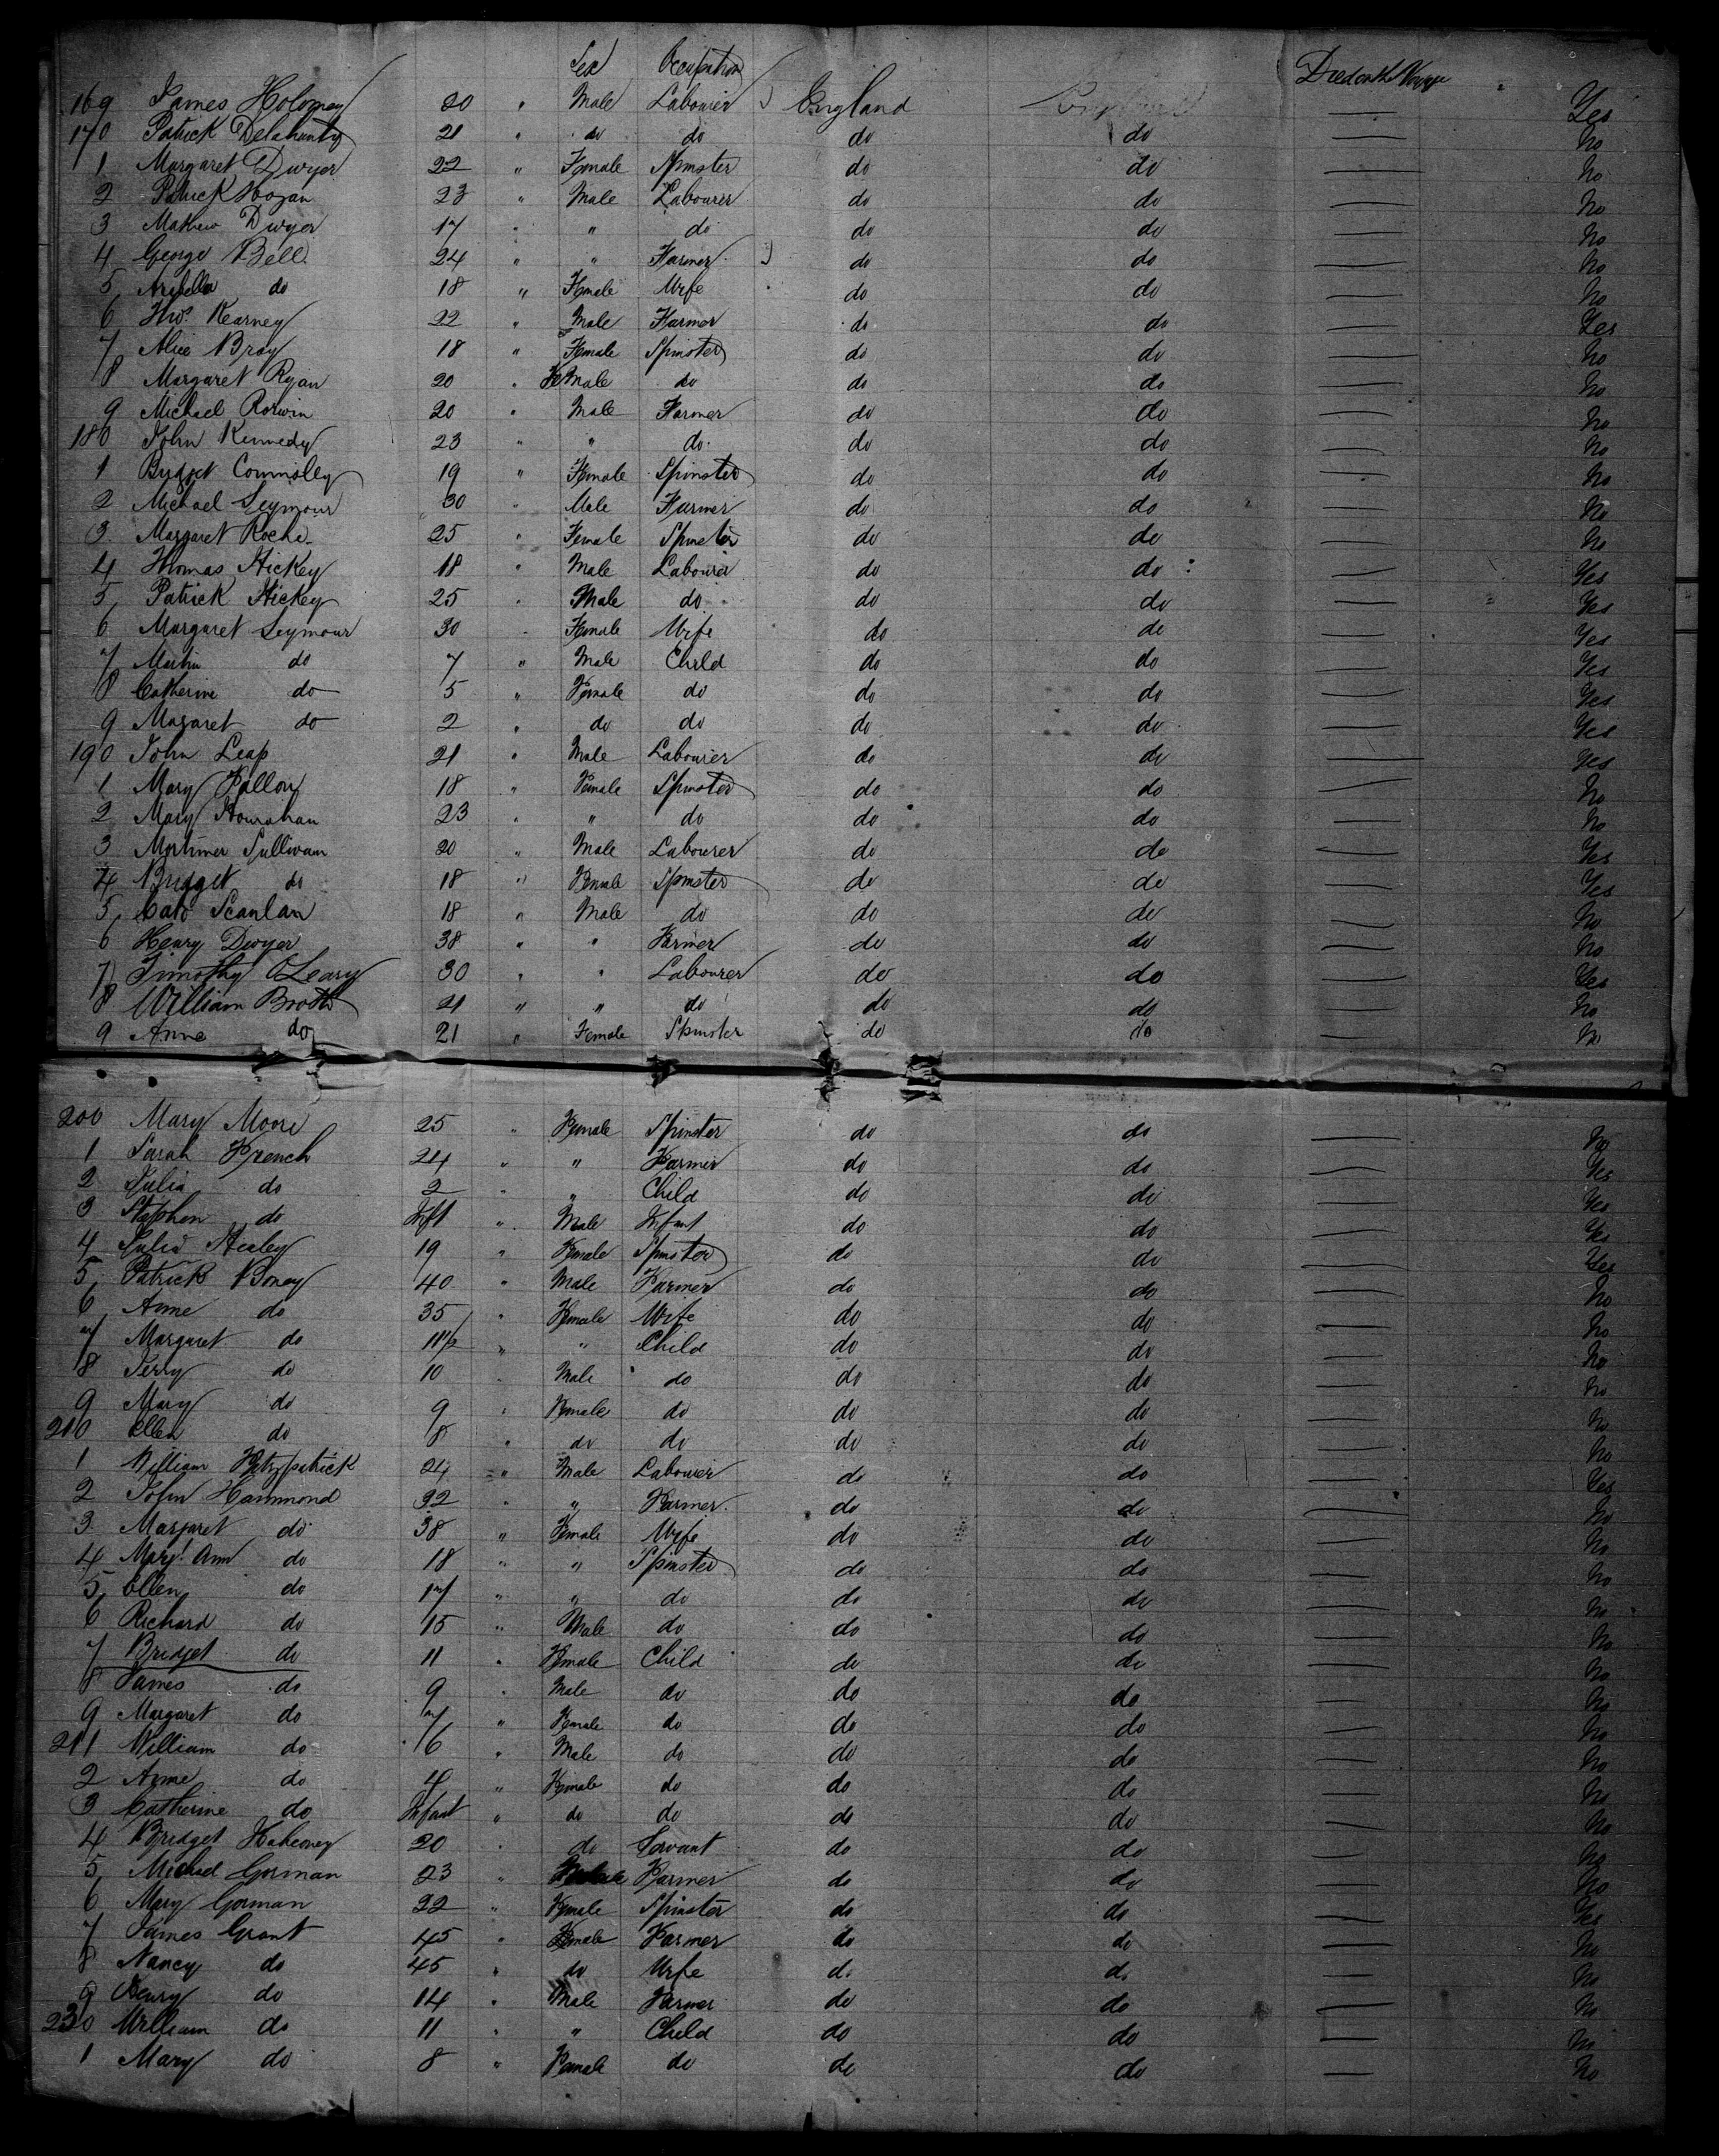 Sex Occupation Died on the Voyage
169 James Holoney 20 " Male Labourer England England — Yes
170 Patrick Delahunty 21 " do do do do — No
1 Margaret Dwyer 22 " Female Spinster do do — No
2 Patrick Hogan 23 " Male Labourer do do — No
3 Mathew Dwyer 17 " " do do do — No
4 George Bell 24 " " Farmer do do — No
5 Arabella do 18 " Female Wife do do — No
6 Thos. Kearney 22 " Male Farmer do do — Yes
7 Alice Bray 18 " Female Spinster do do — No
8 Margaret Ryan 20 " FeMale do do do — No
9 Michael Rorwin 20 " Male Farmer do do — No
180 John Kennedy 23 " " do do do — No
1 Bridget Connolly 19 " Female Spinster do do — No
2 Michael Seymour 30 " Male Farmer do do — No
3 Margaret Roche 25 " Female Spinster do do — No
4 Thomas Hickey 18 " Male Labourer do do — Yes
5 Patrick Hickey 25 " Male do do do — Yes
6 Margaret Seymour 30 " Female Wife do do — Yes
7 Martin do 7 " Male Child do do — Yes
8 Catherine do 5 " Female do do do — Yes
9 Magaret do 2 " do do do do — Yes
190 John Leap 21 " Male Labourer do do — Yes
1 Mary Fallon 18 " Female Spinster do do — No
2 Mary Hourahan 23 " " do do do — No
3 Mortimer Sullivan 20 " Male Labourer do do — Yes
4 Bridget do 18 " Female Spinster do do — Yes
5 Cath Scanlan 18 " Male do do do — No
6 Henry Dwyer 38 " " Farmer do do — No
7 Timothy OLeary 30 " " Labourer do do — Yes
8 William Broth 21 " " do do do — No
9 Anne do 21 " Female Spinster do do — No
200 Mary Moore 25 " Female Spinster do do — No
1 Sarah French 24 " " Farmer do do — Yes
2 Julia do 2 " " Child do do — Yes
3 Stephen do Inft " Male Infant do do — Yes
4 Julia Healey 19 " Female Spinster do do — Yes
5 Patrick Boney 40 " Male Farmer do do — No
6 Anne do 35 " Female Wife do do — No
7 Margaret do 11½ " " Child do do — No
8 Terry do 10 " Male do do do — No
9 Mary do 9 " Female do do do — No
210 Ellen do 8 " do do do do — No
1 William Fitzpatrick 24 " Male Labourer do do — Yes
2 John Hammond 32 " " Farmer do do — No
3 Margaret do 38 " Female Wife do do — No
4 Mary Ann do 18 " " Spinster do do — No
5 Ellen do 17 " " do do do — No
6 Richard do 15 " Male do do do — No
7 Bridget do 11 " Female Child do do — No
8 James do 9 " Male do do do — No
9 Margaret do 7 " Female do do do — No
211 William do 6 " Male do do do — No
2 Anne do 4 " Female do do do — No
3 Catherine do Infant " do do do do — No
4 Bridget Kaheoney 20 " do Servant do do — No
5 Michael Gorman 23 " Farmer do do — No
6 Mary Gorman 22 " Female Spinster do do — Yes
7 James Grant 45 " Female Farmer do do — No
8 Nancy do 45 " do Wife do do — No
9 Henry do 14 " Male Farmer do do — No
230 William do 11 " " Child do do — No
1 Mary do 8 " Female do do do — No